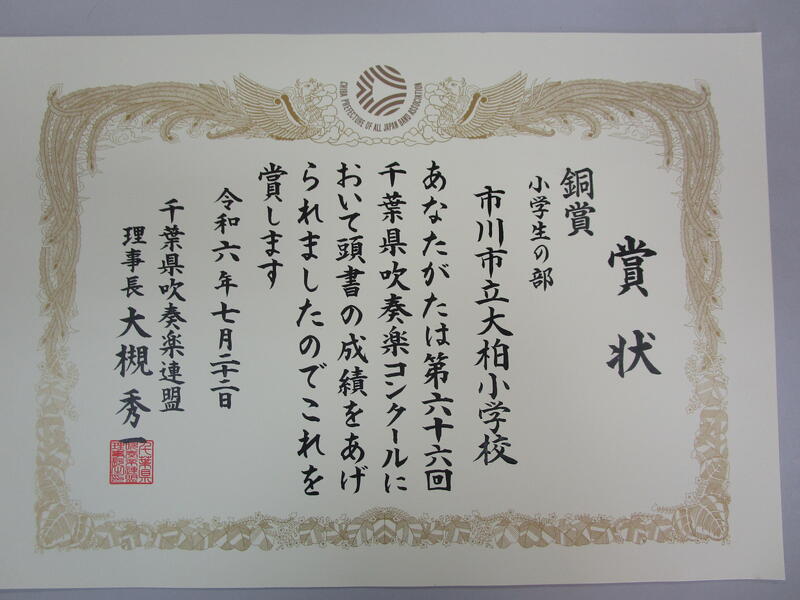 CHIBA PREFECTURE OF ALL JAPAN BAND ASSOCIATION
賞状
銅賞
小学生の部
市川市立大柏小学校
あなたがたは第六十六回
千葉県吹奏楽コンクールに
おいて頭書の成績をあげ
られましたのでこれを
賞します
令和六年七月二十二日
千葉県吹奏楽連盟
理事長 大槻秀一